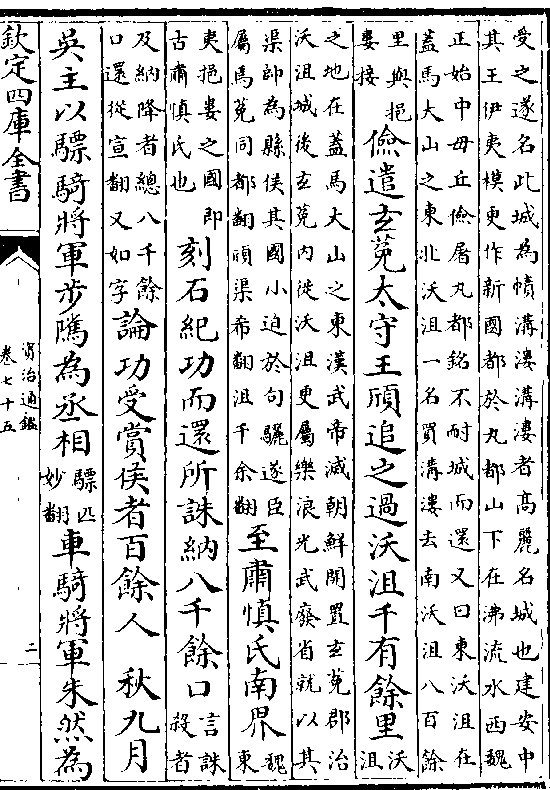 受之遂名此城為幘溝漊溝漊者高麗名城也建安中
其王伊夷模更作新國都於丸都山下在沸流水西魏
正始中毋丘儉屠丸都銘不耐城而還又曰東沃沮在
蓋馬大山之東北沃沮一名買溝漊去南沃沮八百餘
里與挹
婁接
儉遣玄菟太守王頎追之過沃沮千有餘里
沃
沮
之地在蓋馬大山之東漢武帝滅朝鮮開置玄菟郡治
沃沮城後玄菟内徙沃沮更屬樂浪光武廢省就以其
渠帥為縣侯其國小迫於句驪遂臣
屬焉菟同都翻頎渠希翻沮千余翻
至肅慎氏南界
魏
東
夷挹婁之國即
古肅慎氏也
刻石紀功而還所誅納八千餘口
言誅
殺者
及納降者總八千餘
口還從宣翻又如字
論功受賞侯者百餘人 秋九月
吳主以驃騎將軍步隲為丞相
驃匹
妙翻
車騎將軍朱然為
欽定四庫全書
資治通鑑
卷七十五
二